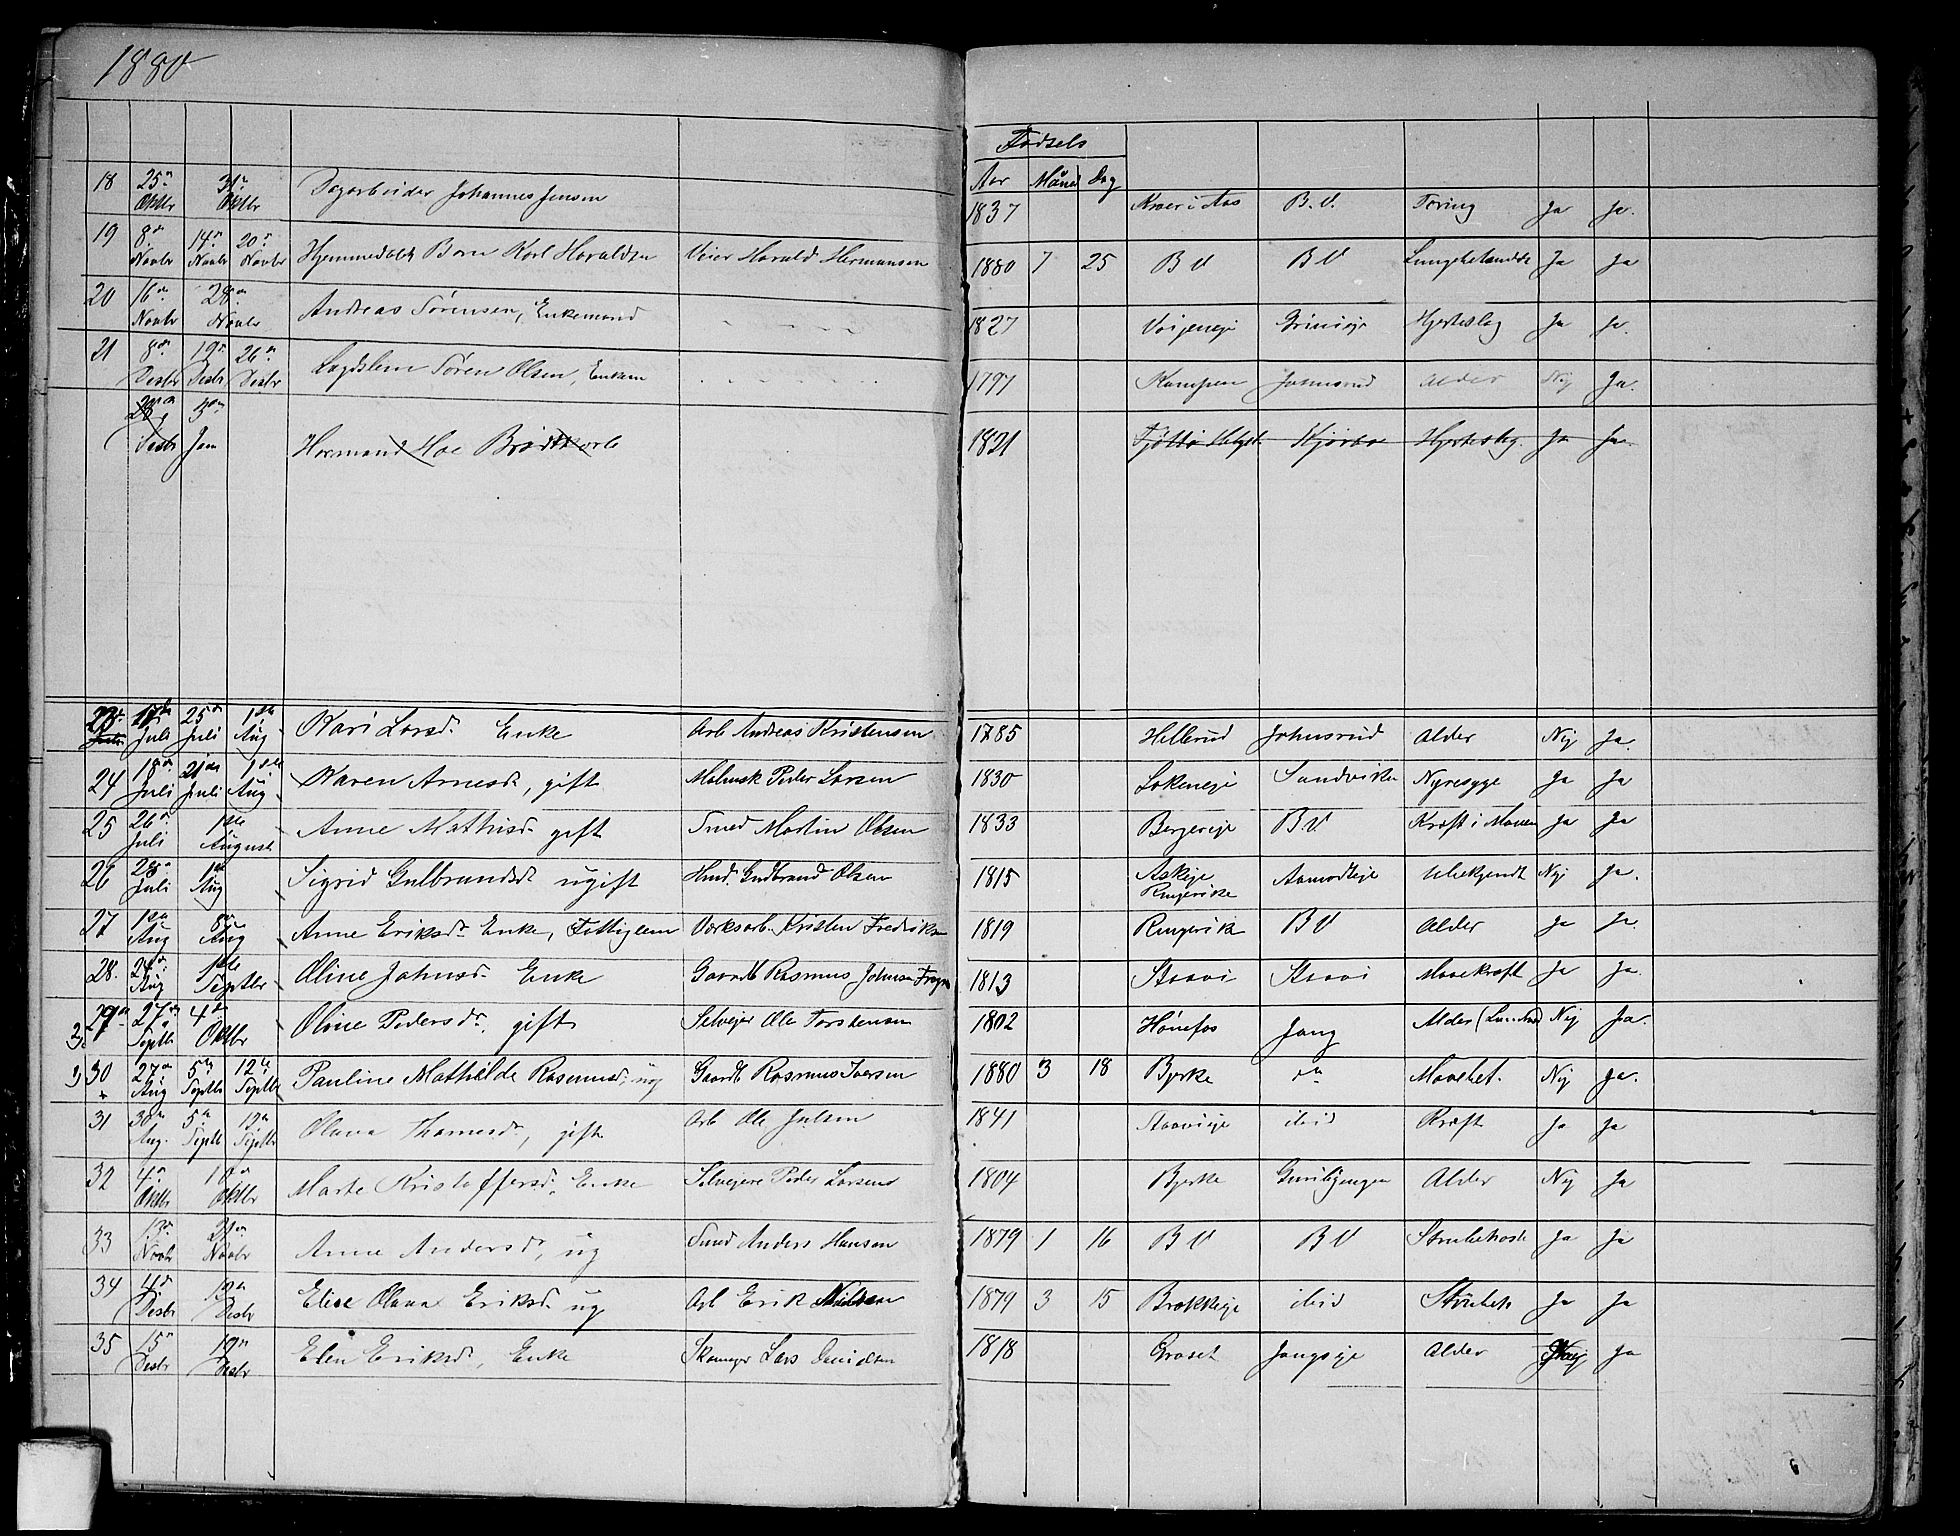 1880
Fødsels
Aar Måned Dag
18 25de Oktbr 31te Oktbr Dagarbeider Johannes Jensen 1837 Kroer i Aas B.V. Tæring Ja Ja.
19 8de Novbr 14de Novbr 20de Novbr Hjemmedøbt Barn Karl Haraldsen Harald Hermansen 1880 7 25 B V B V Ja Ja
20 16de Novbr 28de Novbr Andreas Sørensen, Enkemand 1827 Hjerteslag Ja Ja.
21 8de Desbr 19de Desbr 26de Desbr Lægdslem Søren Olsen, Enkem 1797 Kampen Johnsrud Alder Nej Ja.
28de Desbr 3die Jan Herman Hoe Brodtkorb 1821 Hjerteslag Ja Ja.
23 17de Juli 25de Juli 1ste Aug Kari Larsd. Enke Arb Andreas Kristensen 1785 Hellerud Johnsrud Alder Nej Ja.
24 18de Juli 21de Juli 1ste Aug Karen Arnesd, gift Peder Larsen 1830 Løkeneje Sandviken Nyresyge Ja Ja
25 26de Juli 1ste August Anne Mathisd. gift Smed Martin Olsen 1833 Bergereje B V Kræft i Maven Ja Ja
26 28de Juli 1ste Aug Sigrid Gulbrandsd ugift Gudbrand Olsen 1815 Askeje Ringerike Aamodteje Ubekjendt Nej Ja.
27 1ste Aug 8de Aug Anne Eriksd. Enke, Fattiglem Værksarb. Kristen Fredriksen 1819 Ringerik B V Alder Ja Ja.
28. 24de Aug 1ste Septbr Oline Johnsd. Enke Gaardb Rasmus Johnsen 1813 Staavi Staavi Mavekræft Ja Ja.
29 27de Septb 4de Oktbr Oline Pedersd. gift Selvejer Ole Torstensen 1802 Hønefos Jong Alder Nej Ja.
30 27de Aug 5te Septb 12te Septb Pauline Mathilde Rasmusd. ug Gaardb Rasmus Iversen 1880 3 18 Bjerke do Nej Ja.
31 30te Aug. 5te Septb 12te Septbr Olava Thomesd, gift Arb Ole Julsen 1841 Staavieje ibid Kræft Ja Ja
32 4de Oktbr 10de Oktbr Marte Kristoffersd. Enke Selvejere Peder Larsens 1804 Bjerke Alder Nej Ja
33 13de Novbr 21de Novbr Anne Andersd, ug Smed Anders Hansen 1879 1 16 B V B V Strubehoste Ja Ja
34 4de Desbr 12te Desbr Elise Olava Eriksd ug Arb Erik Nielsen 1879 3 15 Brækkeje ibid Ja Ja
35 15de Desbr 19de Desbr Elen Eriksd, Enke Lars Davidsen 1818 Jongseje Alder Nej Ja